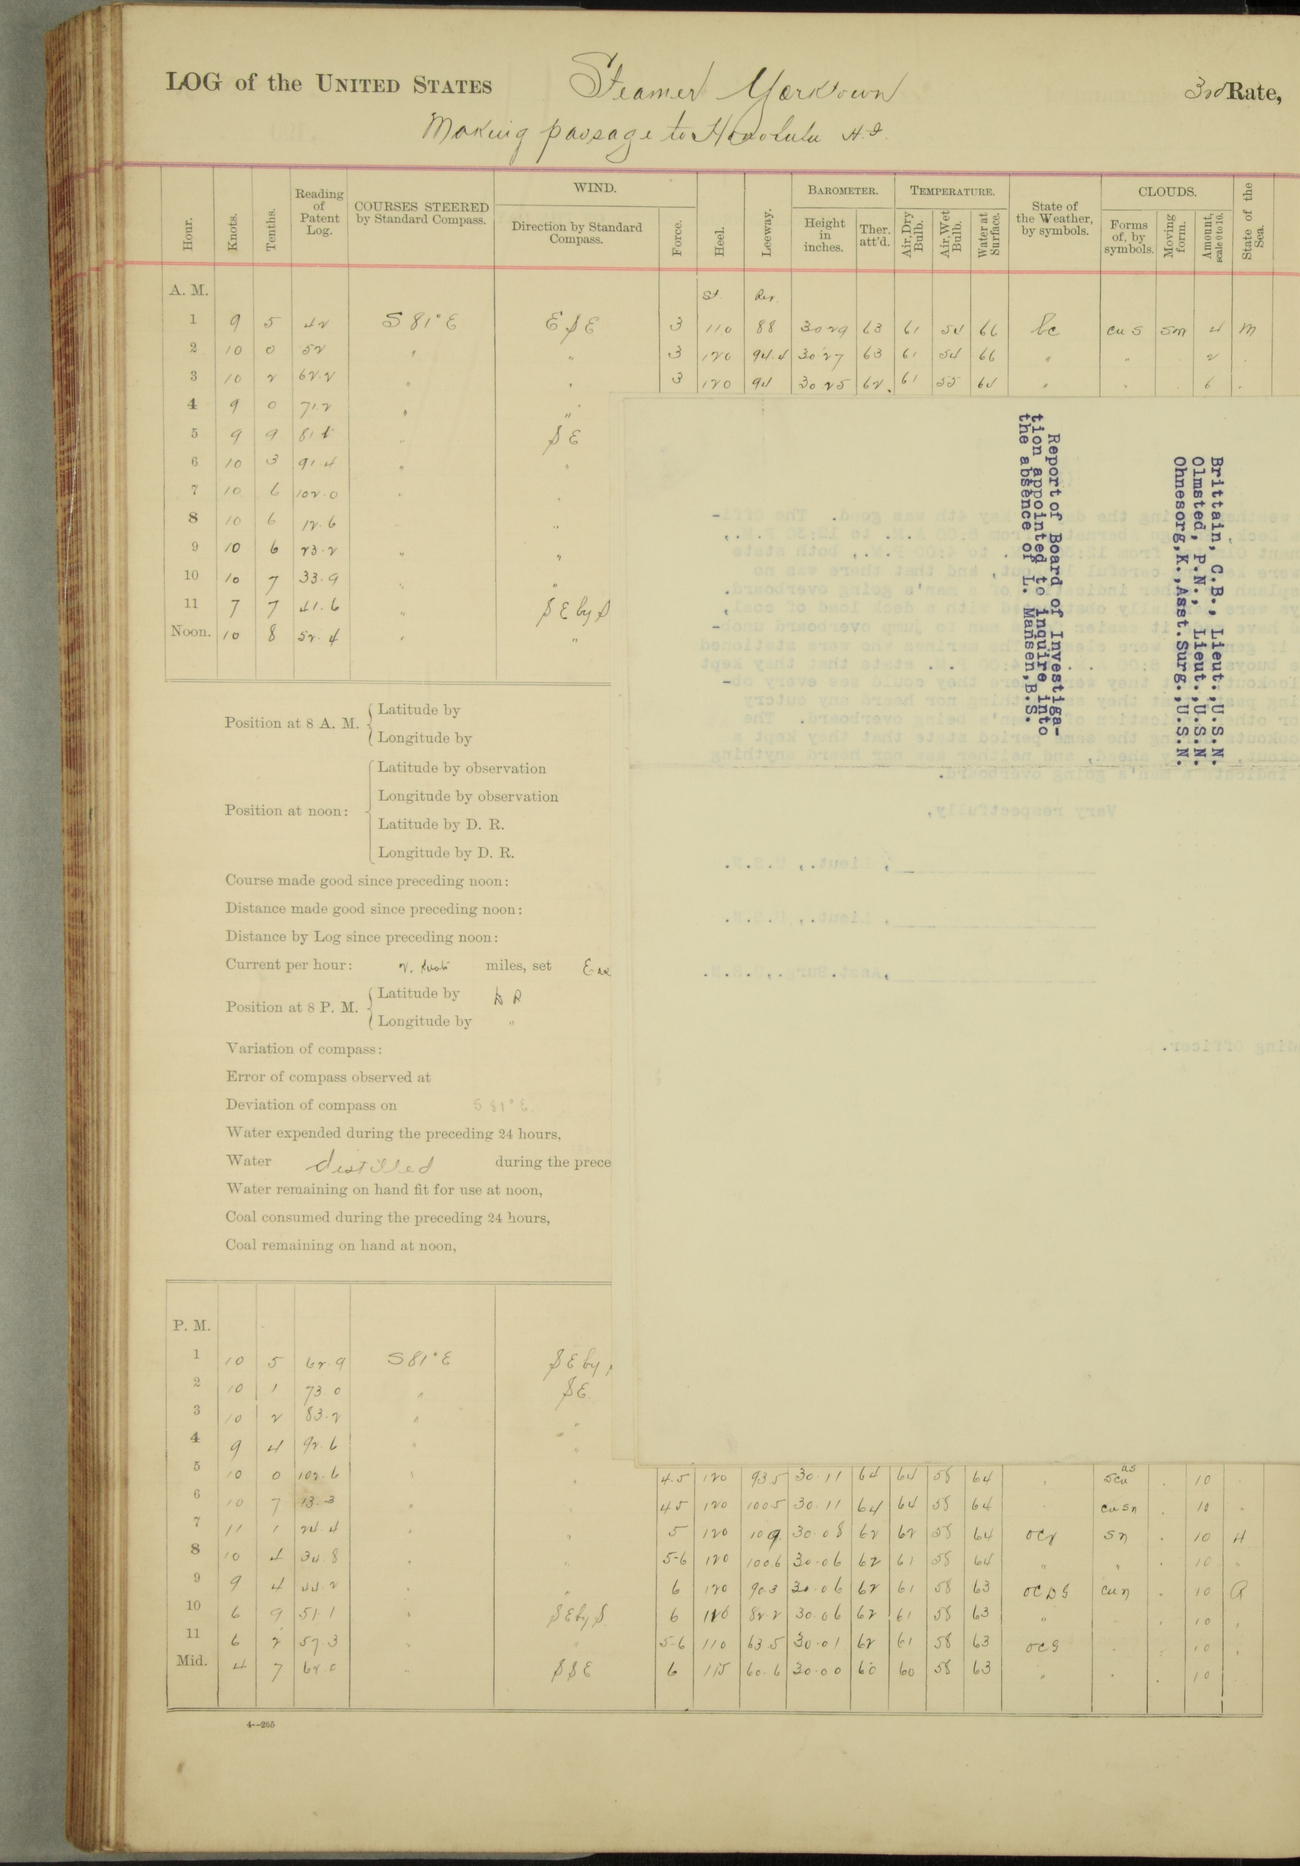 LOG of the UNITED STATES Steamer Yorktown 3rd Rate,
Making passage to Honolulu H.I.
Hour. Knots. Tenths. Reading of Patent Log. COURSES STEERED by Standard Compass. WIND. Direction by Standard Compass. Force. Heel. Leeway. BAROMETER. Height in inches. Ther. att'd. TEMPERATURE. Air, Dry Bulb. Air, Wet Bulb. Water at Surface. State of the Weather, by symbols. CLOUDS. Forms of, by symbols. Moving form. Amount, scale 0 to 10. State of the Sea.
A. M. St. Rev.
1 9 5 42 S 81° E ESE 3 110 88 30 29 63 61 54 66 bc cu s sm 4 m
2 10 0 52 " " 3 120 94.4 30 27 63 61 54 66 " " 2
3 10 2 62.2 " " 3 120 94 30 25 62 61 55 64 " " 6
4 9 0 71.2 " "
5 9 9 81.1 " SE
6 10 3 91.4 " "
7 10 6 102.0 " "
8 10 6 12.6 "
9 10 6 23.2 " "
10 10 7 33.9 " "
11 7 7 41.6 " SE by S
Noon. 10 8 52.4 " "
Report of Board of Investiga-
tion appointed to inquire into
the absence of L. Mansen, B.S.
Brittain, C.B., Lieut., U.S.N.
Olmsted, P.N., Lieut., U.S.N.
Ohnesorg, K., Asst. Surg., U.S.N.
Position at 8 A. M. Latitude by
Longitude by
Position at noon: Latitude by observation
Longitude by observation
Latitude by D. R.
Longitude by D. R.
Course made good since preceding noon:
Distance made good since preceding noon:
Distance by Log since preceding noon:
Current per hour: miles, set
Position at 8 P. M. Latitude by D R
Longitude by "
Variation of compass:
Error of compass observed at
Deviation of compass on S 81° E
Water expended during the preceding 24 hours,
Water distilled during the prece
Water remaining on hand fit for use at noon,
Coal consumed during the preceding 24 hours,
Coal remaining on hand at noon,
P. M.
1 10 5 62.9 S 81° E SE by
2 10 1 73.0 " SE
3 10 2 83.2 " "
4 9 4 92.6 " "
5 10 0 102.6 " " 4.5 120 93.5 30.11 64 64 58 64 " 10
6 10 7 13.3 " " 4.5 120 100.5 30.11 64 64 58 64 " cu sn 10
7 11 1 24.4 " " 5 120 109 30.08 62 62 58 64 ocr sn 10 H
8 10 4 34.8 " " 5-6 120 100.6 30.06 62 61 58 64 " " 10 "
9 9 4 44.2 " " 6 120 90.3 30.06 62 61 58 63 cu n 10 R
10 6 9 51.1 " SE by S 6 110 82.2 30.06 62 61 58 63 " 10
11 6 2 57.3 " " 5-6 110 63.5 30.01 62 61 58 63 ocg 10
Mid. 4 7 62.0 " SSE 6 115 60.6 30.00 60 60 58 63 " 10
4—265